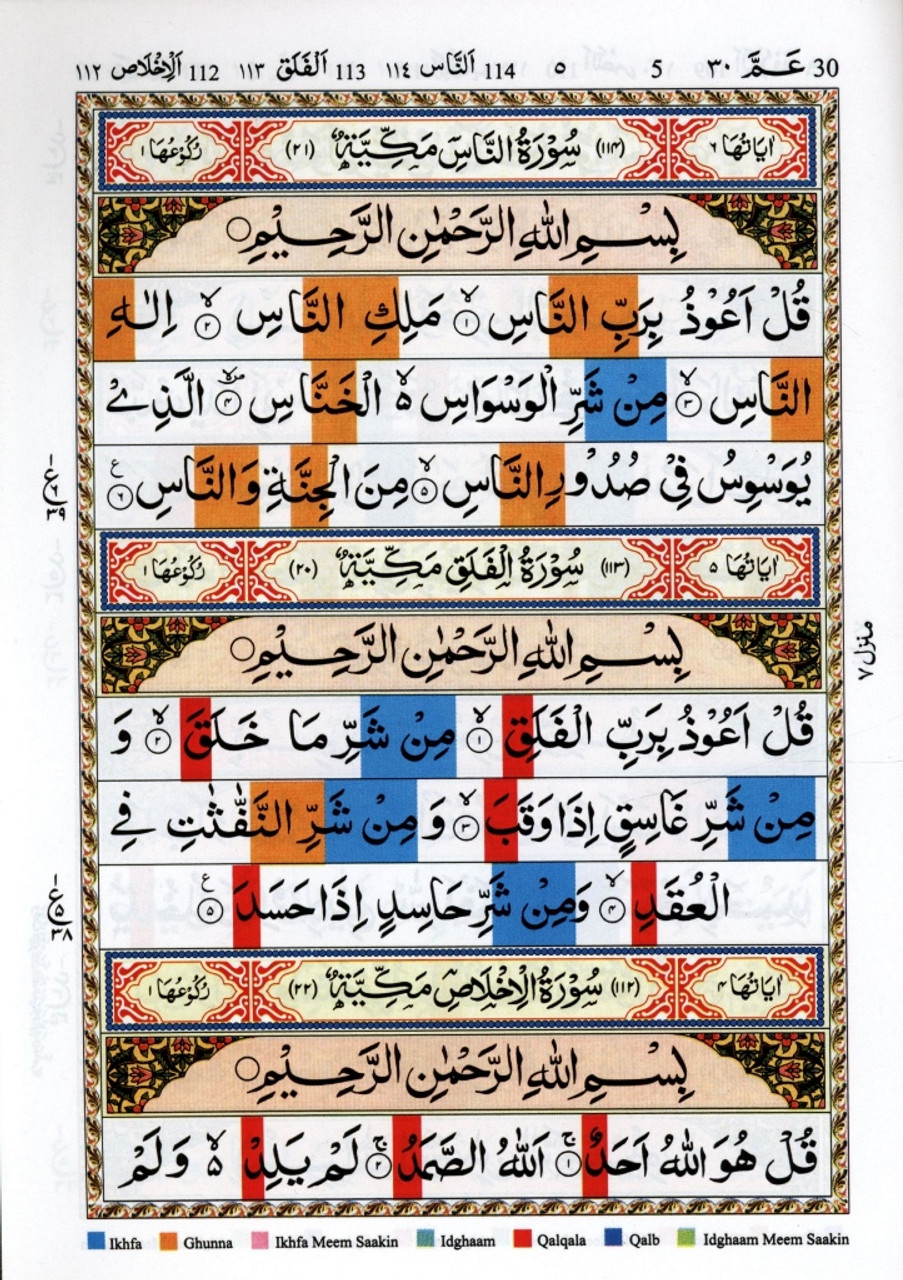 30 عَمَّ ٣٠ 5 ٥ 114 اَلنَّاس ١١٤ 113 اَلْفَلَق ١١٣ 112 اَلْاِخْلَاص ١١٢
اٰيَاتُهَا ٦ (١١٤) سُوْرَةُ النَّاسِ مَكِّيَّةٌ (٢١) رُكُوْعُهَا ١
بِسْمِ اللّٰهِ الرَّحْمٰنِ الرَّحِيْمِ
قُلْ اَعُوْذُ بِرَبِّ النَّاسِ ۙ‏ ﴿١﴾ مَلِكِ النَّاسِ ۙ‏ ﴿٢﴾ اِلٰهِ
النَّاسِ ۙ‏ ﴿٣﴾ مِنْ شَرِّ الْوَسْوَاسِ ۵ الْخَنَّاسِ ۪ۙ‏ ﴿٤﴾ الَّذِىْ
يُوَسْوِسُ فِىْ صُدُوْرِ النَّاسِ ۙ‏ ﴿٥﴾ مِنَ الْجِنَّةِ وَالنَّاسِ ﴿٦﴾ ع
ع ٦ ٣٩
اٰيَاتُهَا ٥ (١١٣) سُوْرَةُ الْفَلَقِ مَكِّيَّةٌ (٢٠) رُكُوْعُهَا ١
بِسْمِ اللّٰهِ الرَّحْمٰنِ الرَّحِيْمِ
منزل ٧
قُلْ اَعُوْذُ بِرَبِّ الْفَلَقِ ۙ‏ ﴿١﴾ مِنْ شَرِّ مَا خَلَقَ ۙ‏ ﴿٢﴾ وَ
مِنْ شَرِّ غَاسِقٍ اِذَا وَقَبَ ۙ‏ ﴿٣﴾ وَ مِنْ شَرِّ النَّفّٰثٰتِ فِى
الْعُقَدِ ۙ‏ ﴿٤﴾ وَمِنْ شَرِّ حَاسِدٍ اِذَا حَسَدَ ﴿٥﴾ ع
ع ٥ ٣٨
اٰيَاتُهَا ٤ (١١٢) سُوْرَةُ الْاِخْلَاصِ مَكِّيَّةٌ (٢٢) رُكُوْعُهَا ١
بِسْمِ اللّٰهِ الرَّحْمٰنِ الرَّحِيْمِ
قُلْ هُوَ اللّٰهُ اَحَدٌ ۚ‏ ﴿١﴾ اَللّٰهُ الصَّمَدُ ۚ‏ ﴿٢﴾ لَمْ يَلِدْ ۵ وَلَمْ
Ikhfa Ghunna Ikhfa Meem Saakin Idghaam Qalqala Qalb Idghaam Meem Saakin